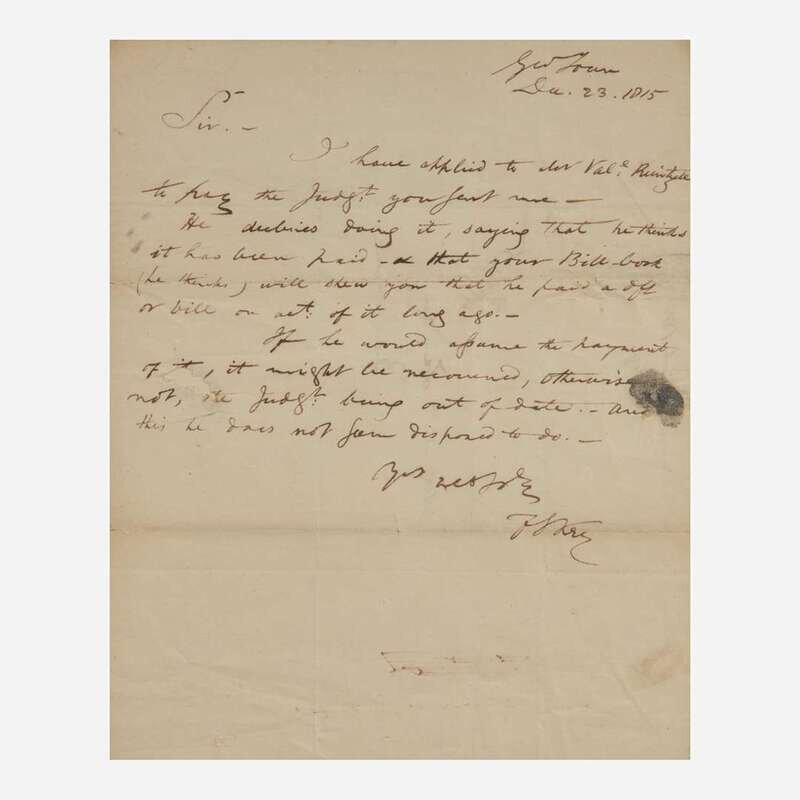 Geo Town
Dec. 23. 1815
Sir. —
I have applied to Mr Val.e Reintzell
to pay the Judg.t you sent me —
He declines doing it, saying that he thinks
it has been paid — & that your Bill-book
(he thinks) will shew you that he paid a dft
or bill on act. of it long ago. —
If he would assume the payment
of it, it might be recovered, otherwise
not, the Judg.t being out of date. — And
this he does not seem disposed to do. —
Yrs respfly
F S Key